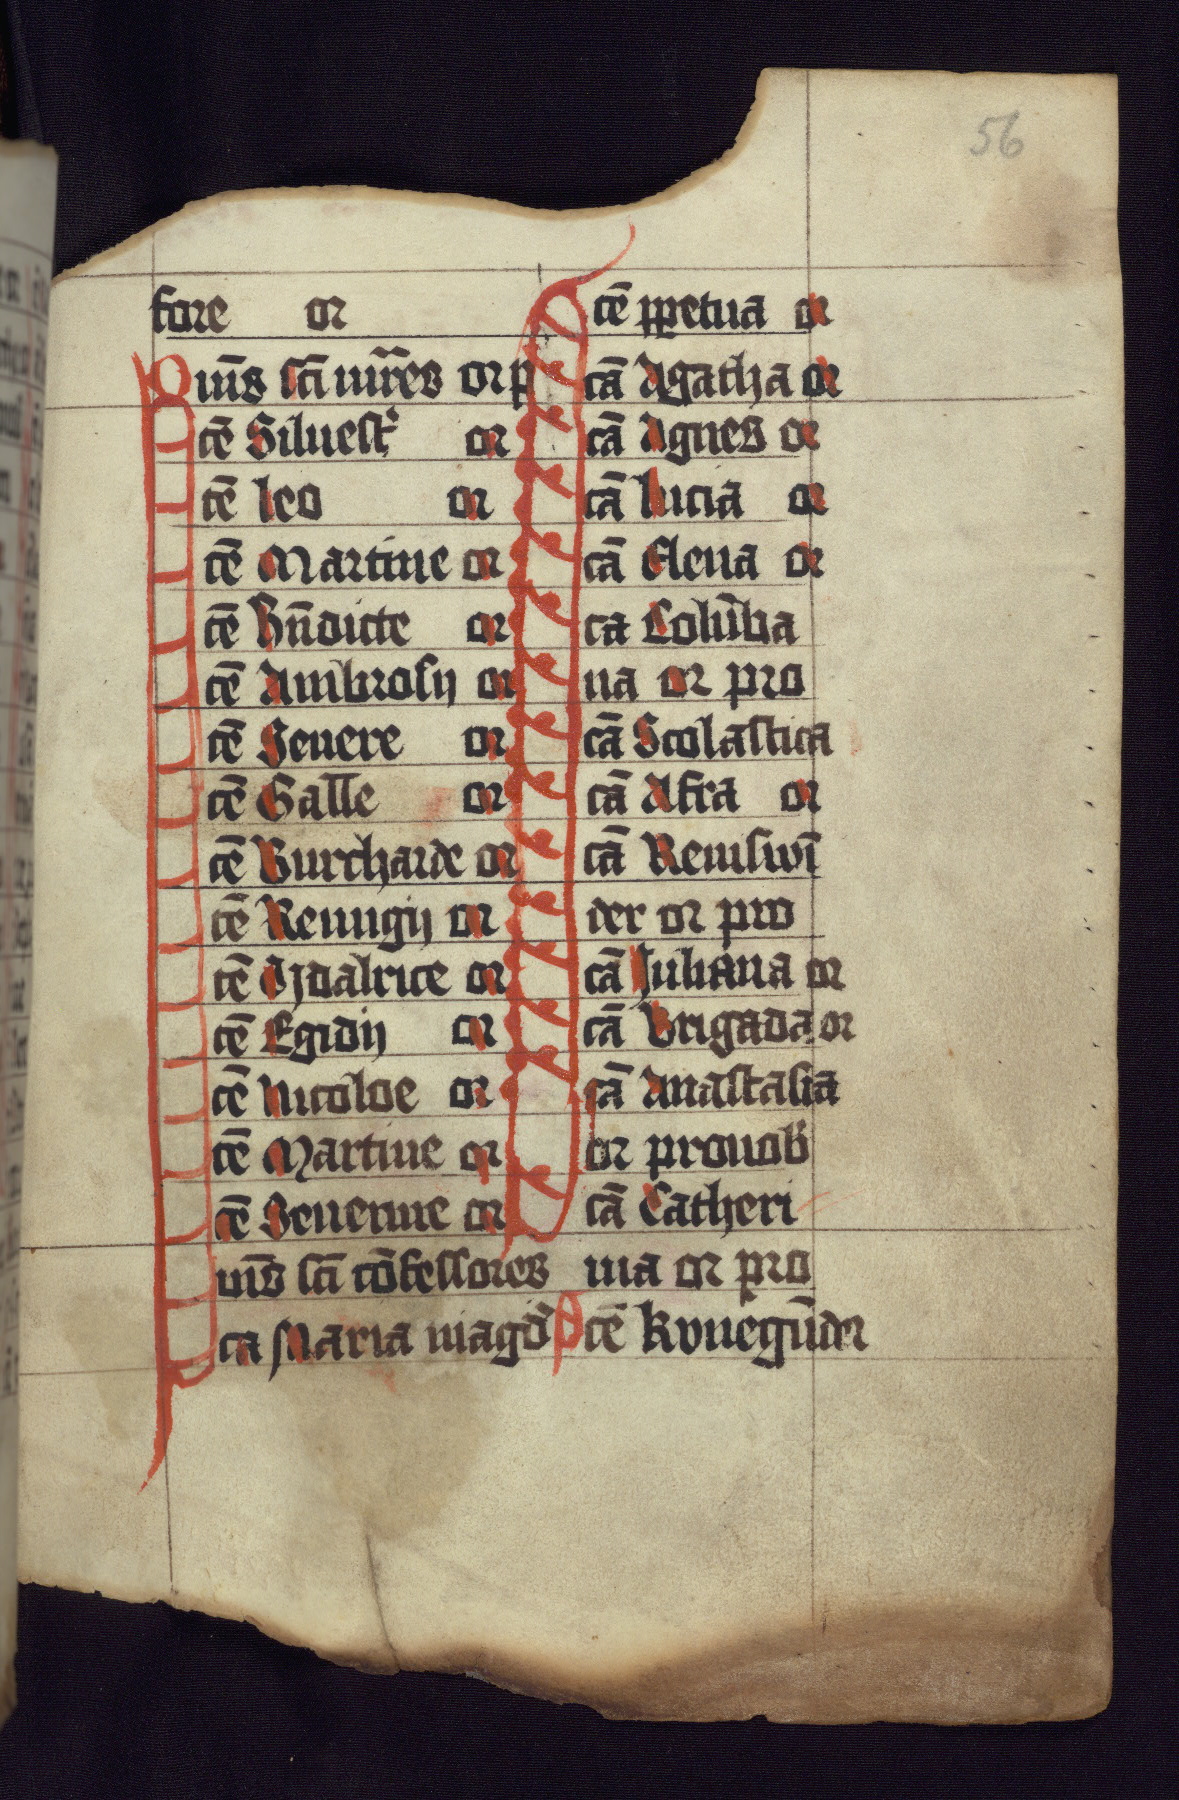 56
fore or
Om̄s sc̄i mr̄res or p
cē Siluestr̓ or
cē leo or
cē Martine or
cē bn̄dicte or
cē Ambrosij or
cē Seuere or
cē Galle or
cē Burcharde or
cē Remigij or
cē Vdalrice or
cē Egidij or
cē Nicolae or
cē Martine or
cē Seuerine or
om̄s sc̄i cōfessores
ca Maria magd̄
cē ppetua or
cā Agatha or
cā Agnes or
cā lucia or
cā Elena or
ca Colūba
na or pro
cā Scolastica
cā Afra or
cā Reinswī
der or pro
cā Juliana or
cā Brigada or
cā Anastasia
or pro nob̄
cā Catheri
na or pro
Scē Kunegūder